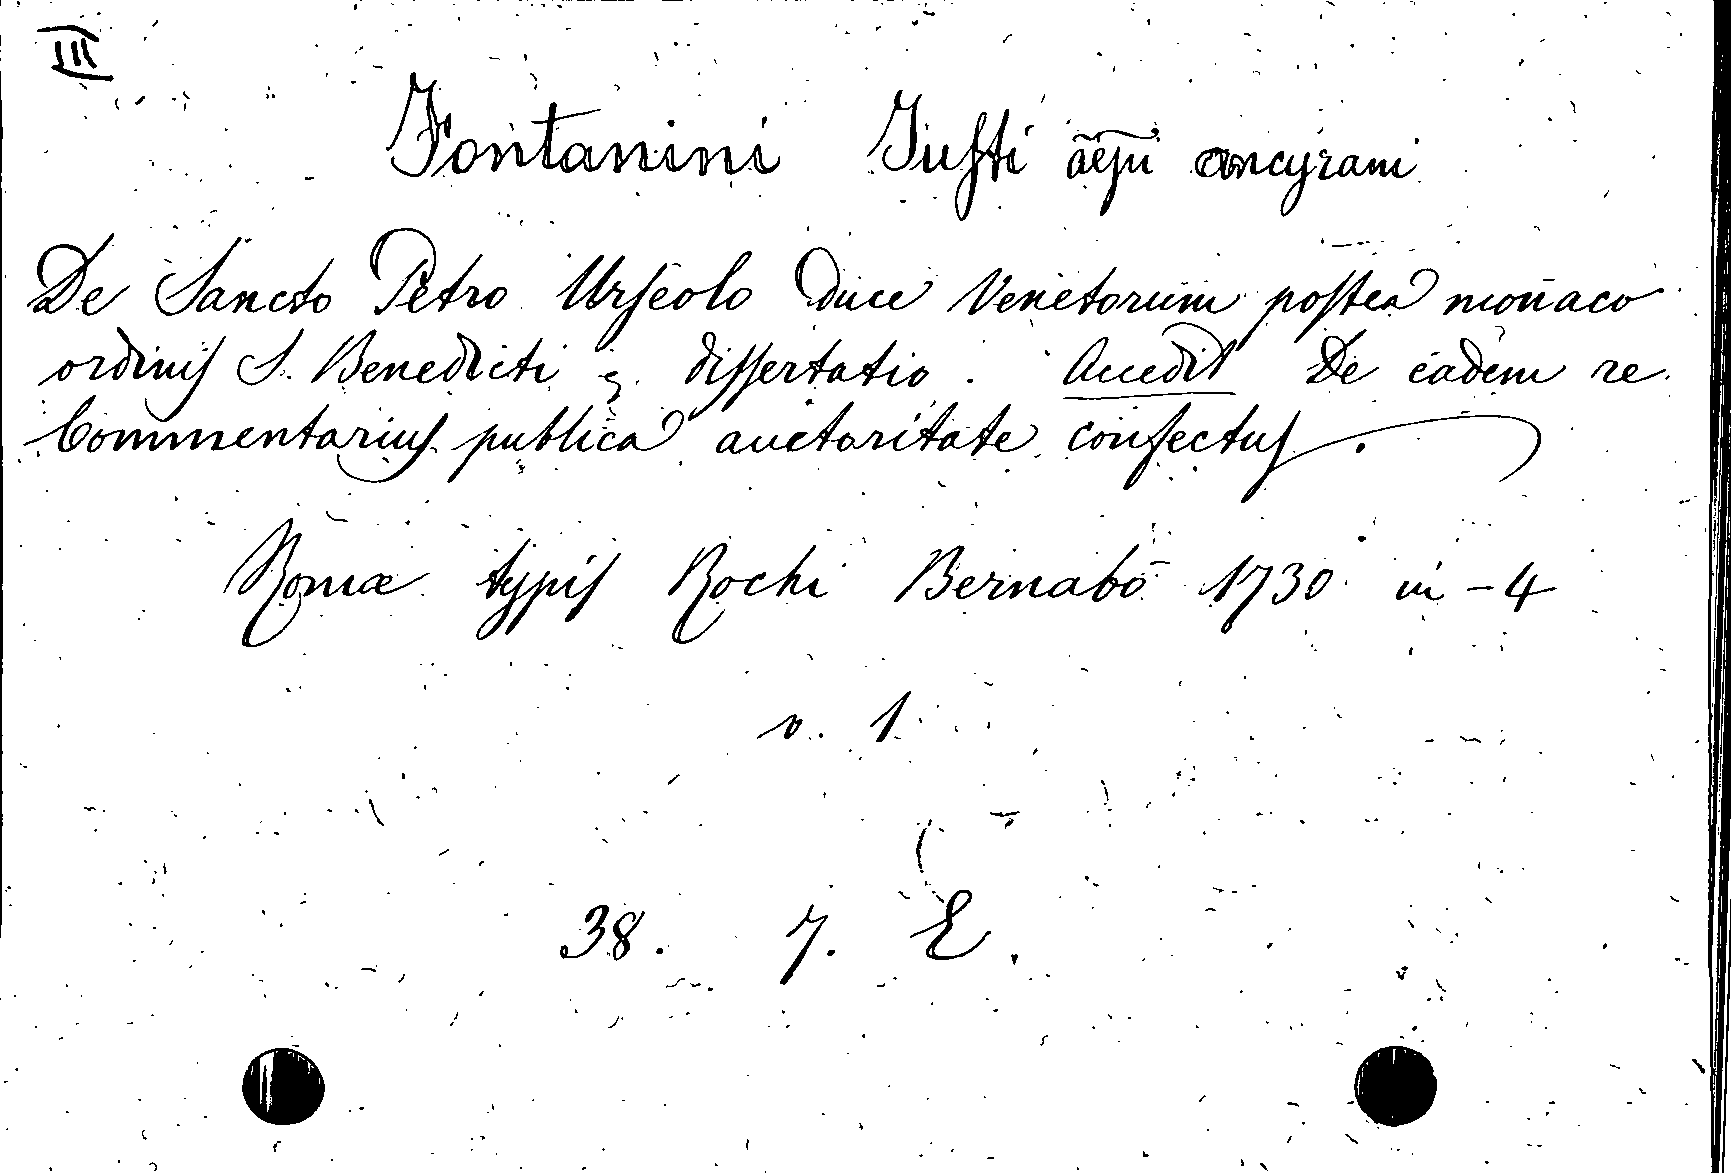 III
Fontanini Justi aepi ancyrani
De Sancto Petro Urseolo Duce Venetorum postea monaco
ordinis S. Benedicti dissertatio. Accedit De eadem re
Commentarius publica auctoritate confectus.
Romæ typis Rochi Bernabò 1730 in-4
v. 1
38. 7. E.